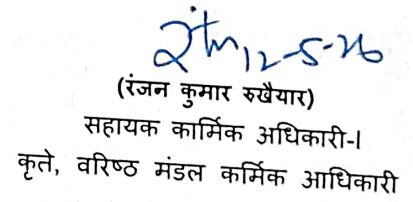 12-5-26
(रंजन कुमार रुखैयार)
सहायक कार्मिक अधिकारी-I
कृते, वरिष्ठ मंडल कर्मिक आधिकारी